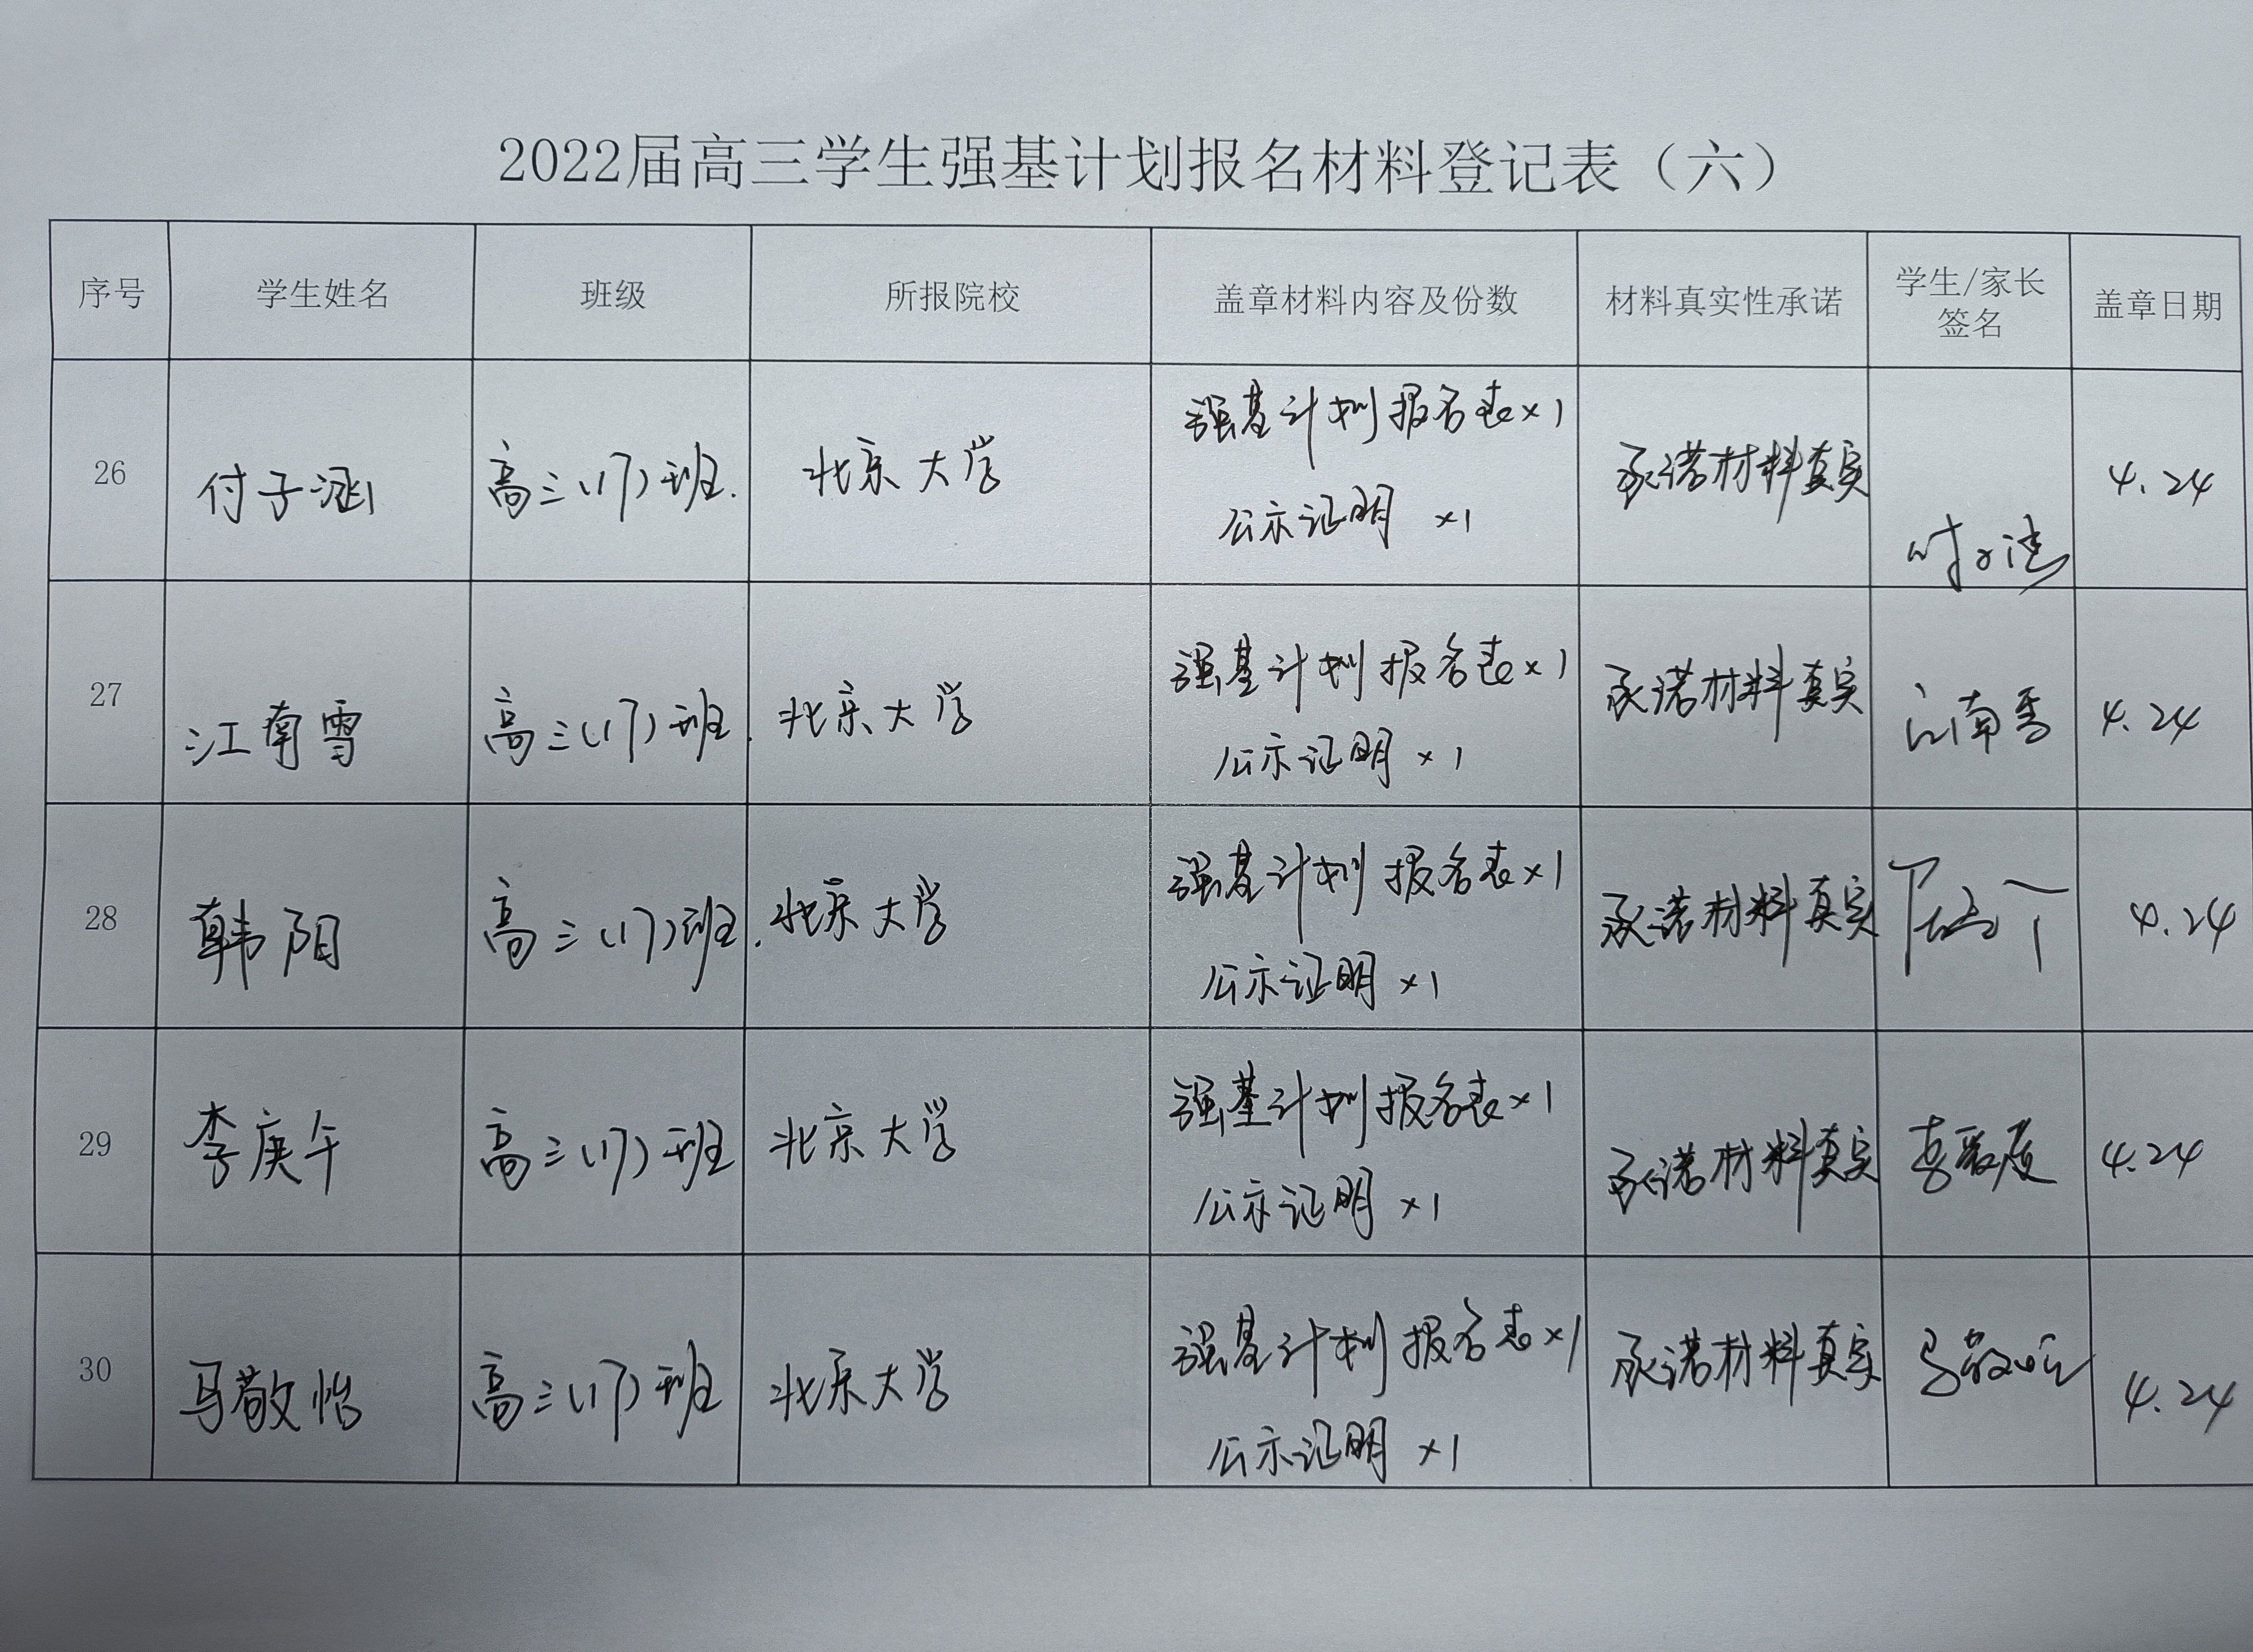 2022届高三学生强基计划报名材料登记表（六）
序号 学生姓名 班级 所报院校 盖章材料内容及份数 材料真实性承诺 学生/家长 签名 盖章日期
26 付子涵 高三(17)班. 北京大学 强基计划报名表×1 承诺材料真实 4.24
公示证明 ×1
27 江南雪 高三(17)班. 北京大学 强基计划报名表×1 承诺材料真实 江南雪 4.24
公示证明 ×1
28 韩阳 高三(17)班. 北京大学 强基计划报名表×1 承诺材料真实 4.24
公示证明 ×1
29 李庚午 高三(17)班 北京大学 强基计划报名表×1 承诺材料真实 4.24
公示证明 ×1
30 马敬怡 高三(17)班 北京大学 强基计划报名表×1 承诺材料真实 马敬怡 4.24
公示证明 ×1